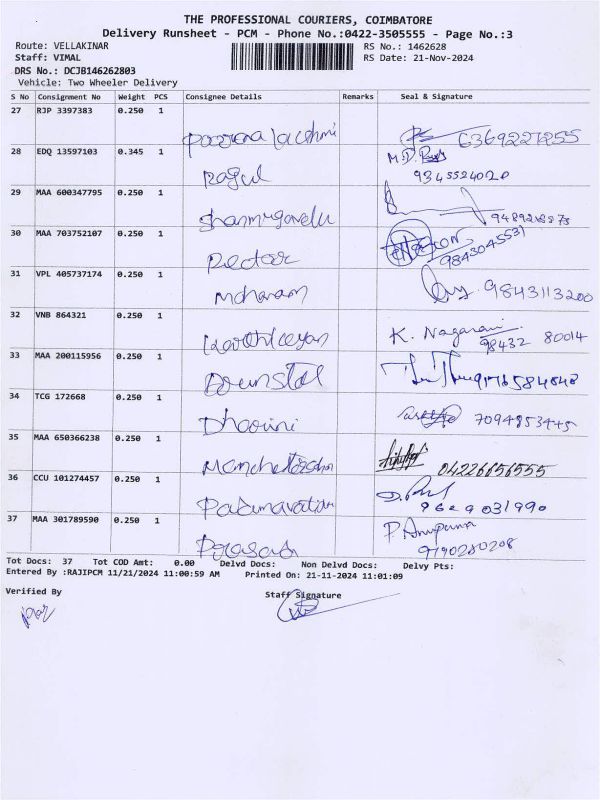 THE PROFESSIONAL COURIERS, COIMBATORE
Delivery Runsheet - PCM - Phone No.:0422-3505555 - Page No.:3
Route: VELLAKINAR RS No.: 1462628
Staff: VIMAL RS Date: 21-Nov-2024
DRS No.: DCJB146262803
Vehicle: Two Wheeler Delivery
S No Consignment No Weight PCS Consignee Details Remarks Seal & Signature
27 RJP 3397383 0.250 1
Poorna lacshmi 6369227255
28 EDQ 13597103 0.345 1
Ragul 9345524020
29 MAA 600347795 0.250 1
Shanmugavelu
30 MAA 703752107 0.250 1
9843045531
31 VPL 405737174 0.250 1
Moharam 9843113200
32 VNB 864321 0.250 1
Karthikeyan K. Nagarani 98432 80014
33 MAA 200115956 0.250 1
34 TCG 172668 0.250 1
Dharini 7094853445
35 MAA 650366238 0.250 1
04226656555
36 CCU 101274457 0.250 1
Padmavathi
37 MAA 301789590 0.250 1
Prasad P. Anupama
Tot Docs: 37 Tot COD Amt: 0.00 Delvd Docs: Non Delvd Docs: Delvy Pts:
Entered By :RAJIPCM 11/21/2024 11:00:59 AM Printed On: 21-11-2024 11:01:09
Verified By Staff Signature